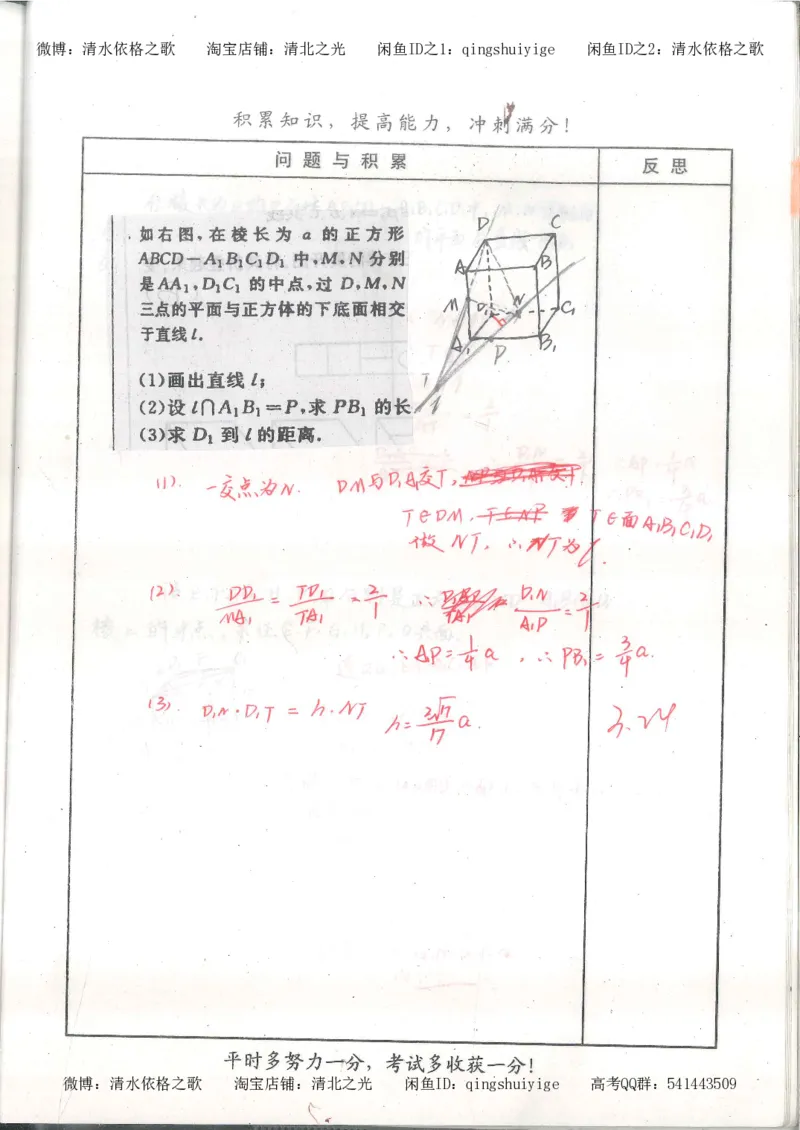 微博：清水依格之歌 淘宝店铺：清北之光 闲鱼ID之1：qingshuiyige 闲鱼ID之2：清水依格之歌
积累知识，提高能力，冲刺满分！
问题与积累 反思
如右图，在棱长为 a 的正方形
ABCD－A₁B₁C₁D₁ 中，M，N 分别
是AA₁，D₁C₁ 的中点，过 D，M，N
三点的平面与正方体的下底面相交
于直线 l．
(1)画出直线 l；
(2)设 l∩A₁B₁＝P，求 PB₁ 的长
(3)求 D₁ 到 l 的距离．
D C
A B
M D₁ N C₁
A₁ P B₁
T l
(1). 一交点为N. DM与D₁A交T，
T∈DM，T∈面A₁B₁C₁D₁
做NT，∴NT为l．
(2) DD₁/MA₁ = TD₁/TA₁ = 2/1 ∴ D₁N/A₁P = 2/1
∴AP=1/4 a ，∴PB₁ = 3/4 a.
(3). D₁N·D₁T = h·NT h= 2√17/17 a. 3.24
平时多努力一分，考试多收获一分！
微博：清水依格之歌 淘宝店铺：清北之光 闲鱼ID：qingshuiyige 高考QQ群：541443509